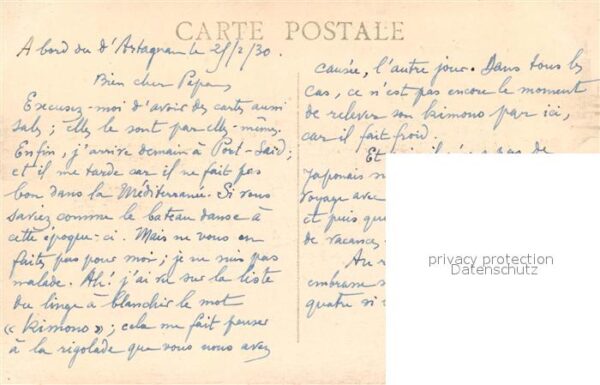 CARTE POSTALE
A bord du d'Artagnan le 25/2/30.
Bien cher Pépé,
Excusez-moi d'avoir des cartes aussi
sales ; elles le sont par elles-mêmes.
Enfin, j'arrive demain à Port-Saïd ;
et il me tarde car il ne fait pas
bon dans la Méditerranée. Si vous
saviez comme le bateau danse à
cette époque-ci. Mais ne vous en
faites pas pour moi ; je ne suis pas
malade. Ah! j'ai vu sur la liste
du linge à blanchir le mot
« Kimono » ; cela me fait penser
à la rigolade que vous nous avez
causée, l'autre jour. Dans tous les
cas, ce n'est pas encore le moment
de relever son kimono par ici,
car il fait froid.
Et
Japonais
voyage avec
et puis que
de vacances.
Au
embrasse
quatre si
privacy protection
Datenschutz